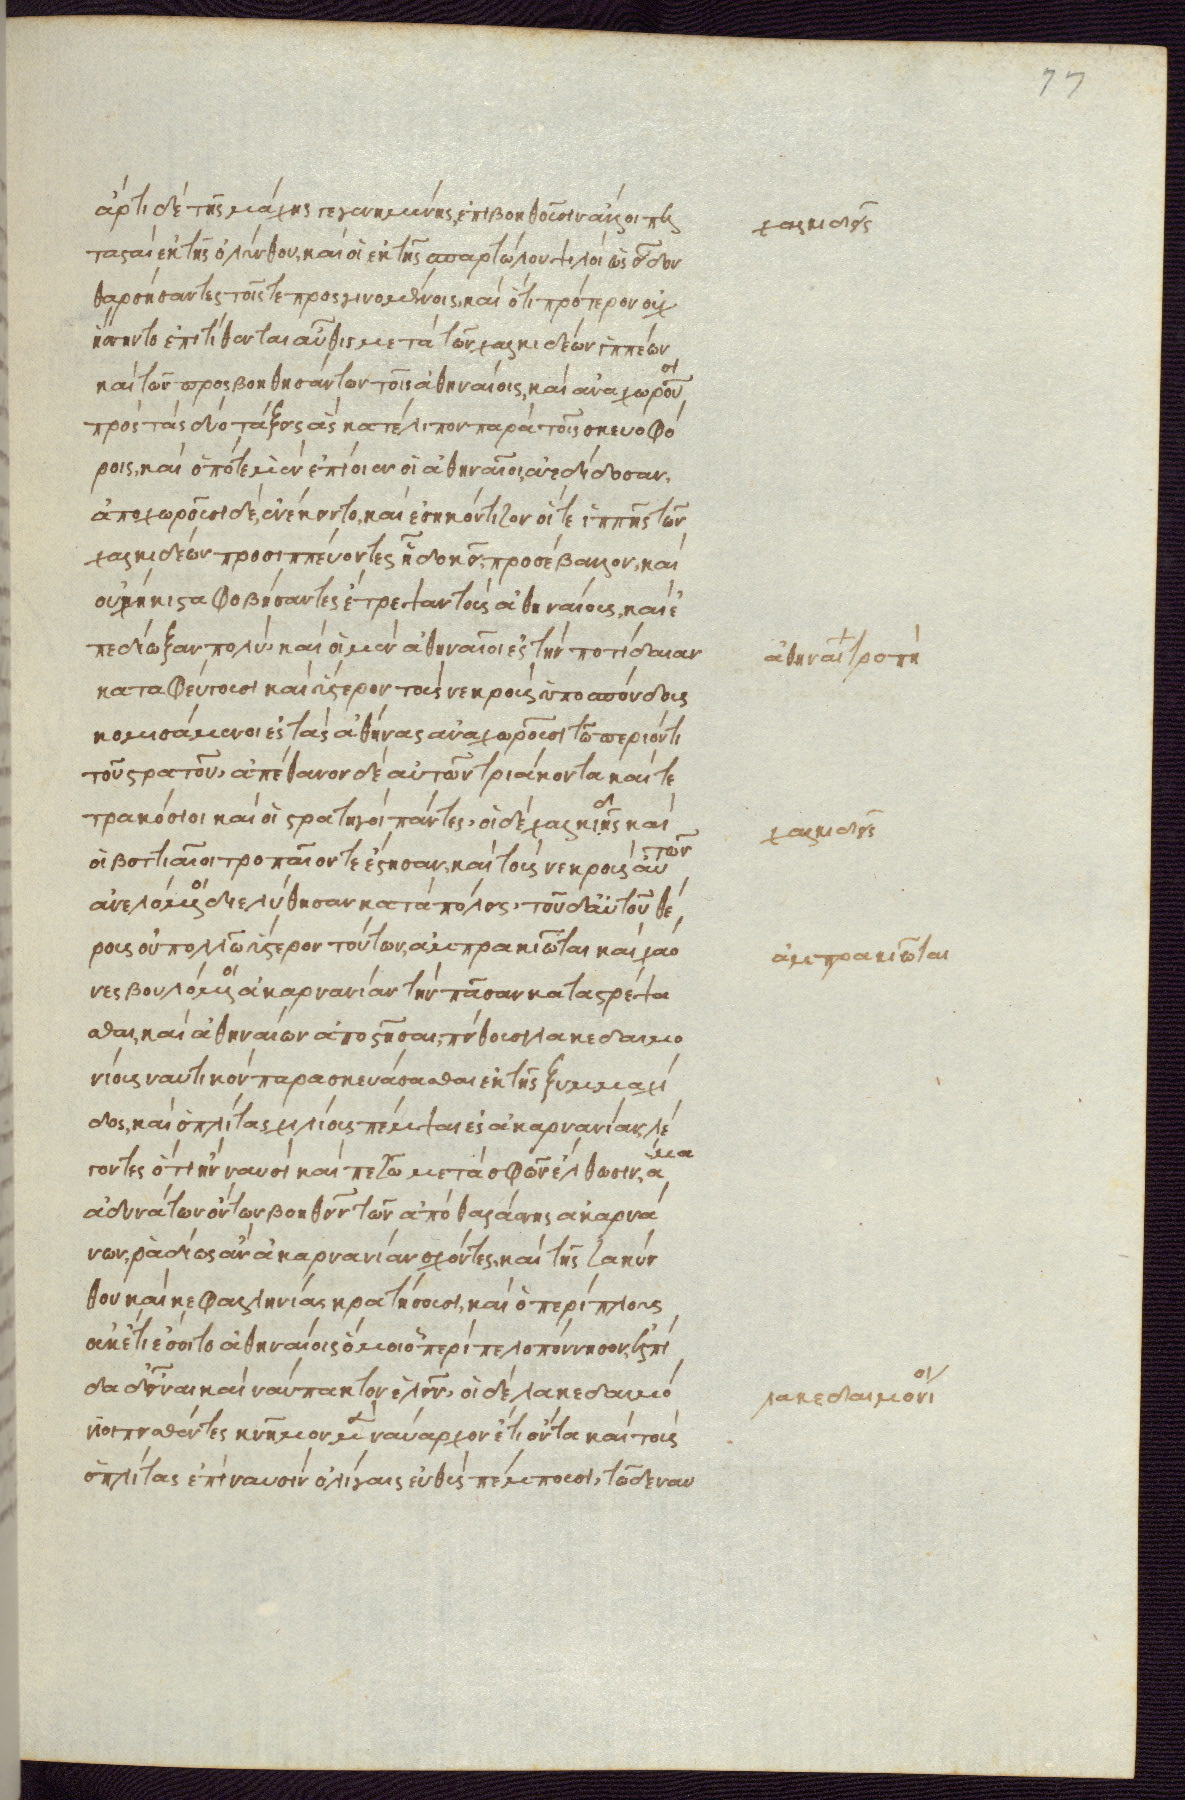 77
ἄρτι δὲ τῆς μάχης γεγενημένης, ἐπιβοηθοῦσιν ἄλλοι πελ
χαλκιδῆς
τασταὶ ἐκ τῆς ὀλύνθου, καὶ οἱ ἐκ τῆς σπαρτώλου ψιλοὶ ὡς εἶδον
θαρσήσαντες τοῖς τε προσγινομένοις, καὶ ὅτι πρότερον οὐχ
ἥσσηντο ἐπιτίθενται αὖθις μετὰ τῶν χαλκιδέων ἱππέων
καὶ τῶν προσβοηθησάντων τοῖς ἀθηναίοις, καὶ ἀναχωροῦσι
πρὸς τὰς δύο τάξεις ἃς κατέλιπον παρὰ τοῖς σκευοφό
ροις, καὶ ὁπότε μὲν ἐπίοιεν οἱ ἀθηναῖοι, ἐνεδίδοσαν,
ἀποχωροῦσι δὲ, ἐνέκειντο, καὶ ἐσηκόντιζον οἵ τε ἱππῆς τῶν
χαλκιδέων προσιππεύοντες ᾗ δοκοῖ, προσέβαλλον, καὶ
οὐχ ἥκιστα φοβήσαντες ἔτρεψαν τοὺς ἀθηναίους, καὶ ἐ
πεδίωξαν πολύ, καὶ οἱ μὲν ἀθηναῖοι ἐς τὴν ποτίδαιαν
ἀθηναί τροπὴ
καταφεύγουσι καὶ ὕστερον τοὺς νεκροὺς ὑποσπόνδους
κομισάμενοι ἐς τὰς ἀθήνας ἀναχωροῦσι τῷ περιόντι
τοῦ στρατοῦ, ἀπέθανον δὲ αὐτῶν τριάκοντα καὶ τε
τρακόσιοι καὶ οἱ στρατηγοὶ πάντες, οἱ δὲ χαλκιδῆς καὶ
χαλκιδῆς
οἱ βοττιαῖοι τροπαῖόν τε ἔστησαν, καὶ τοὺς νεκροὺς αὑτῶν
ἀνελόμενοι διελύθησαν κατὰ πόλεις, τοῦ δ' αὐτοῦ θέ
ρους οὐ πολλῷ ὕστερον τούτων, ἀμπρακιῶται καὶ χαό
ἀμπρακιῶται
νες βουλόμενοι ἀκαρνανίαν τὴν πᾶσαν καταστρέψα
σθαι, καὶ ἀθηναίων ἀποστῆσαι, πείθουσι λακεδαιμο
νίους ναυτικόν παρασκευάσασθαι ἐκ τῆς ξυμμαχί
δος, καὶ ὁπλίτας χιλίους πέμψαι ἐς ἀκαρνανίαν, λέ
γοντες ὅτι ἢν ναυσὶ καὶ πεζῷ μετὰ σφῶν ἔλθωσιν, ἅμα
ἀδυνάτων ὄντων βοηθεῖν τῶν ἀπὸ θαλάσσης ἀκαρνά
νων, ῥᾳδίως ἂν ἀκαρνανίαν σχόντες, καὶ τῆς ζακύν
θου καὶ κεφαλληνίας κρατήσουσι, καὶ ὁ περίπλους
οὐκέτι ἔσοιτο ἀθηναίοις ὁμοίως περὶ πελοπόννησον, ἐλπί
δα δ' εἶναι καὶ ναύπακτον ἑλεῖν, οἱ δὲ λακεδαιμό
λακεδαιμόνιοι
νιοι πεισθέντες κνῆμον μὲν ναύαρχον ἔτι ὄντα καὶ τοὺς
ὁπλίτας ἐπὶ ναυσὶν ὀλίγαις εὐθὺς πέμπουσι, τῷ δὲ ναυ